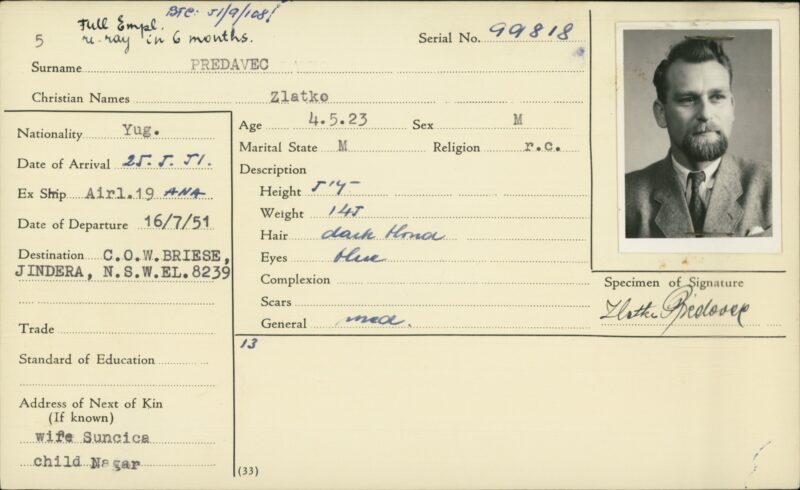 BTC: 51/9/1081
Full Empl.
re-xray in 6 months.
5
Serial No. 99818
Surname PREDAVEC
Christian Names Zlatko
Nationality Yug.
Date of Arrival 25.5.51.
Ex Ship Airl.19 ANA
Date of Departure 16/7/51
Destination C.O.W.BRIESE,
JINDERA, N.S.W.EL.8239
Trade
Standard of Education
Address of Next of Kin
(If known)
wife Suncica
child Nagar
Age 4.5.23 Sex M
Marital State M Religion r.c.
Description
Height 5'4"
Weight 145
Hair dark blond
Eyes blue
Complexion
Scars
General med.
13
(33)
Specimen of Signature
Zlatko Predavec